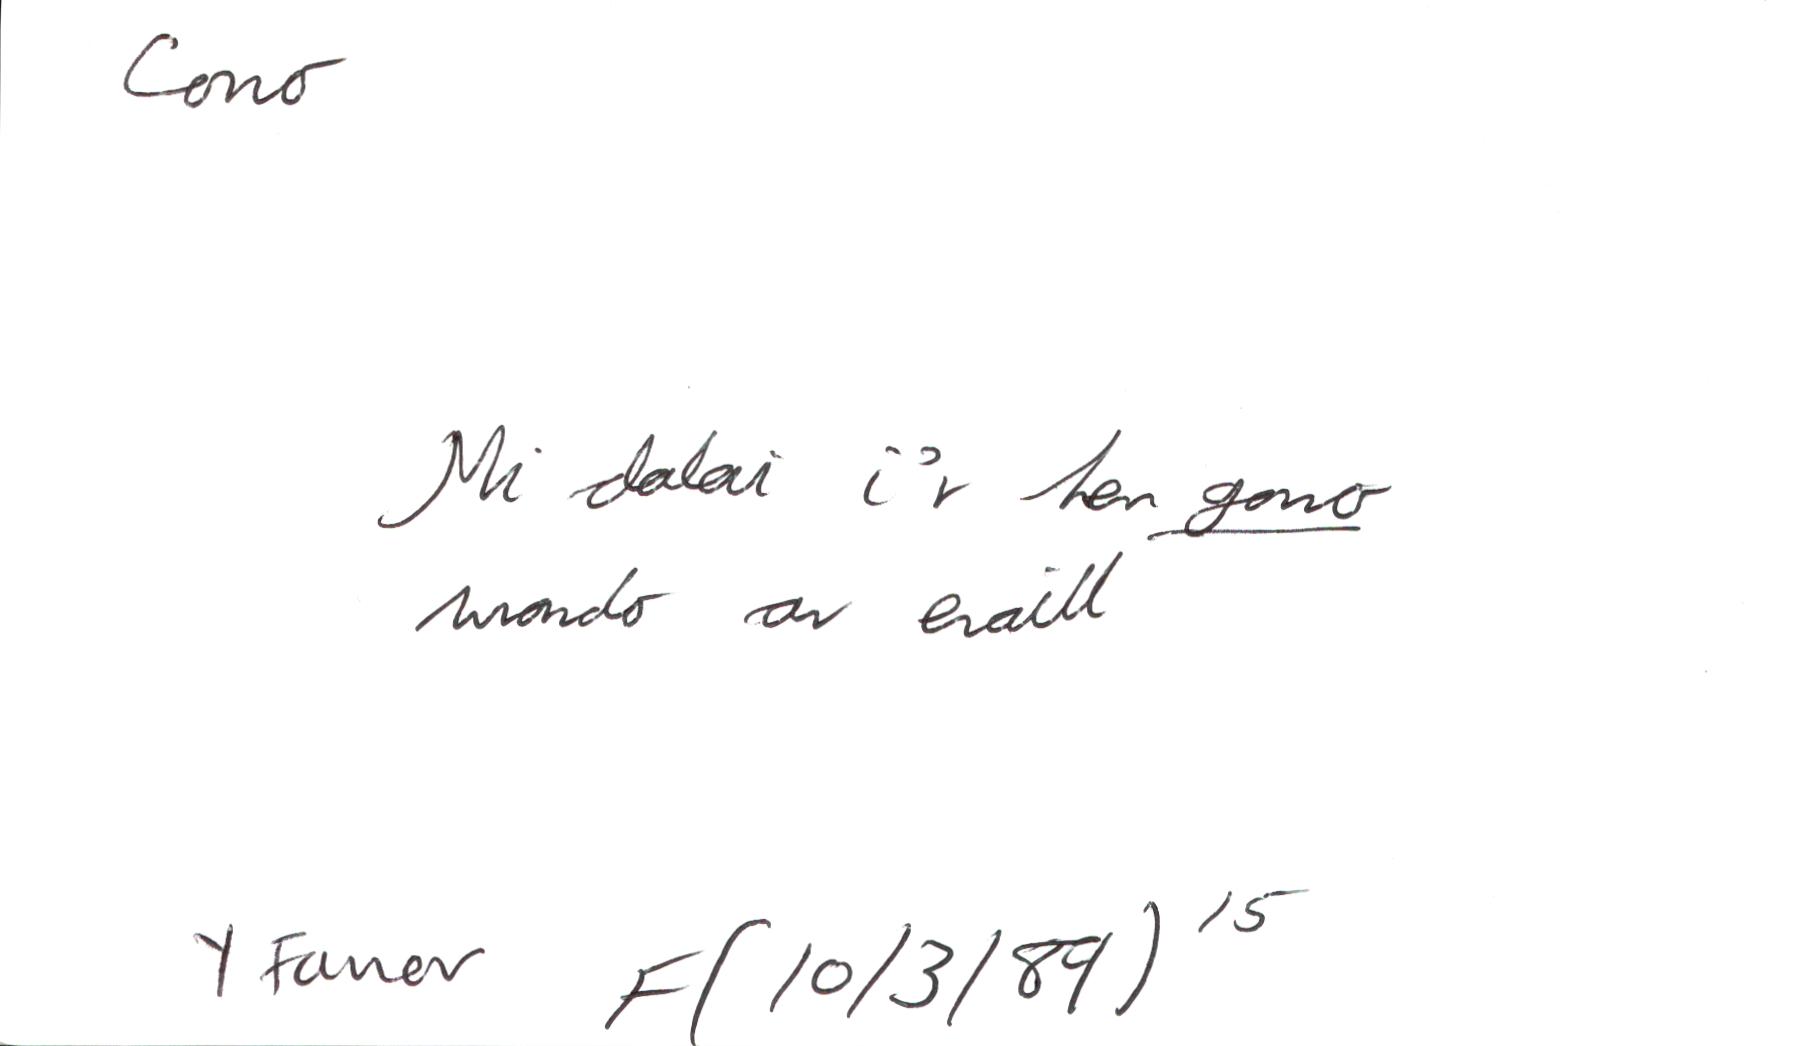 Cono
Mi dalai i'r hen gono
wrando ar eraill
Y Faner F(10/3/89) 15